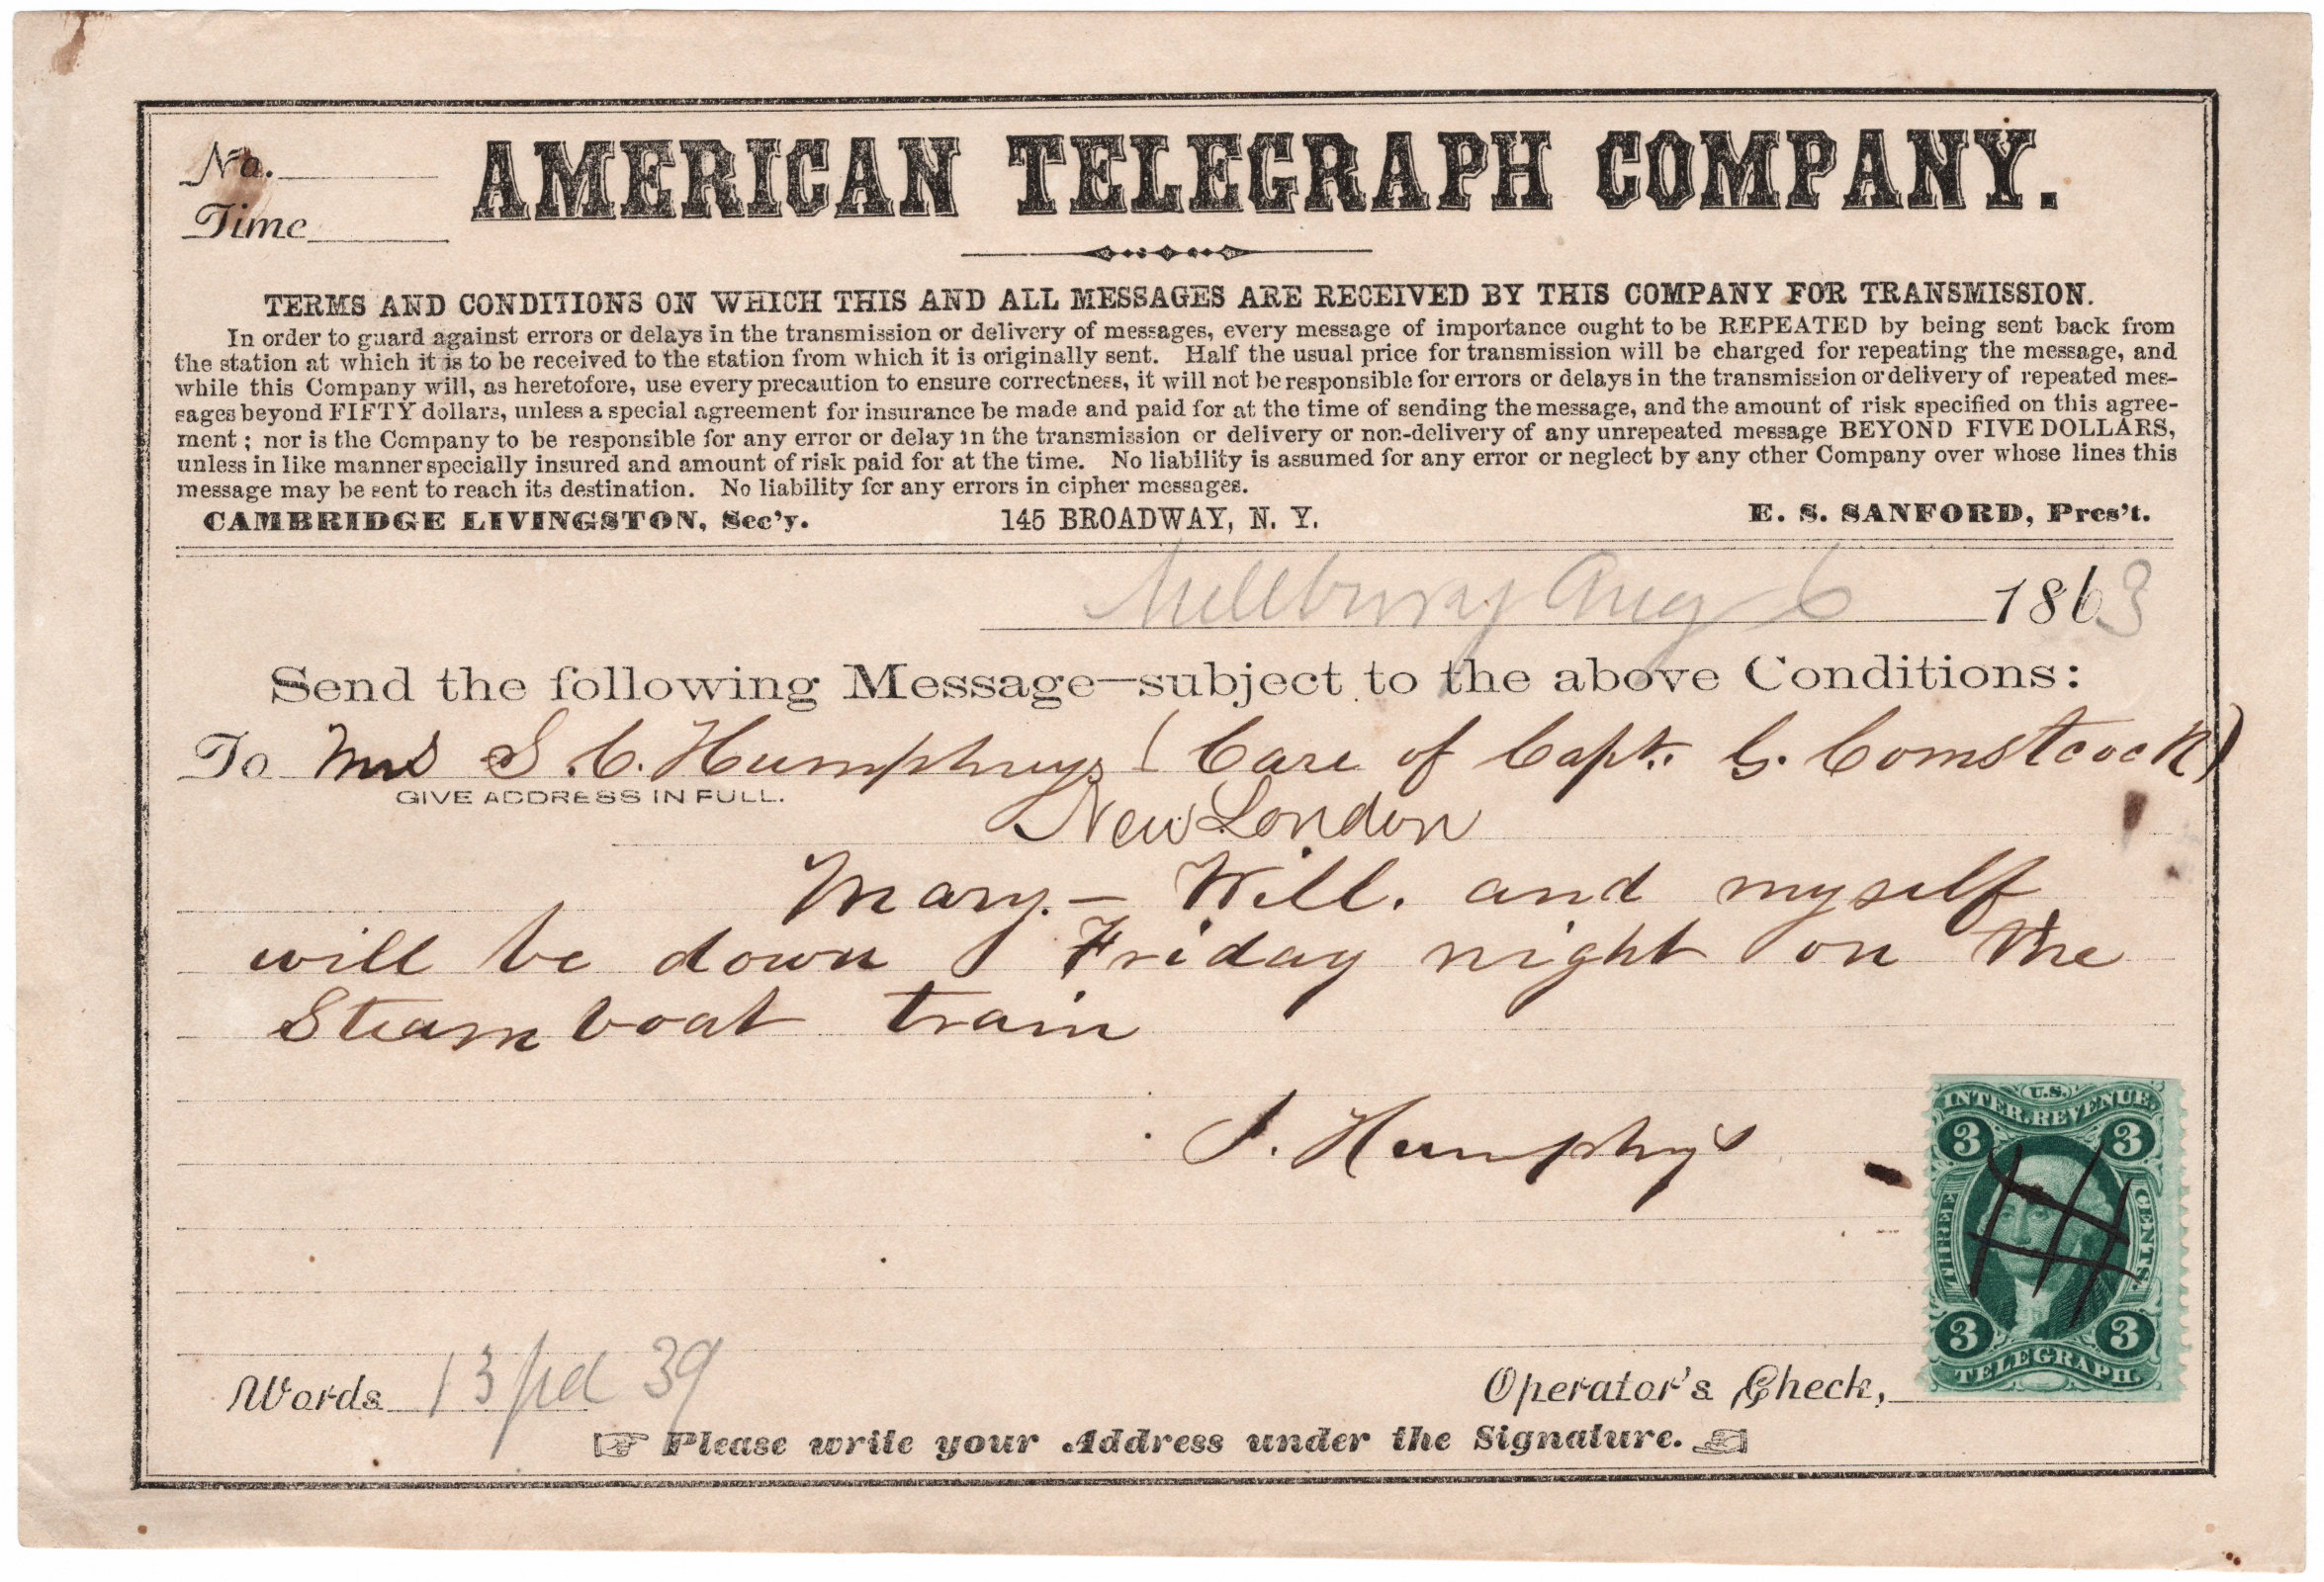 No.
Time
AMERICAN TELEGRAPH COMPANY.
TERMS AND CONDITIONS ON WHICH THIS AND ALL MESSAGES ARE RECEIVED BY THIS COMPANY FOR TRANSMISSION.
In order to guard against errors or delays in the transmission or delivery of messages, every message of importance ought to be REPEATED by being sent back from
the station at which it is to be received to the station from which it is originally sent. Half the usual price for transmission will be charged for repeating the message, and
while this Company will, as heretofore, use every precaution to ensure correctness, it will not be responsible for errors or delays in the transmission or delivery of repeated mes-
sages beyond FIFTY dollars, unless a special agreement for insurance be made and paid for at the time of sending the message, and the amount of risk specified on this agree-
ment; nor is the Company to be responsible for any error or delay in the transmission or delivery or non-delivery of any unrepeated message BEYOND FIVE DOLLARS,
unless in like manner specially insured and amount of risk paid for at the time. No liability is assumed for any error or neglect by any other Company over whose lines this
message may be sent to reach its destination. No liability for any errors in cipher messages.
CAMBRIDGE LIVINGSTON, Sec'y. 145 BROADWAY, N. Y. E. S. SANFORD, Pres't.
Millbury Aug 6 1863
Send the following Message—subject to the above Conditions:
To Mrs S. C. Humphreys (Care of Capt. G. Comstock)
GIVE ADDRESS IN FULL.
New London
Mary - Will. and myself
will be down Friday night on the
Steam boat train
J. Humphrys
U.S.
INTER. REVENUE.
3 3
THREE CENTS.
3 3
TELEGRAPH.
Words 13 pd 39
Operator's Check,
Please write your Address under the Signature.